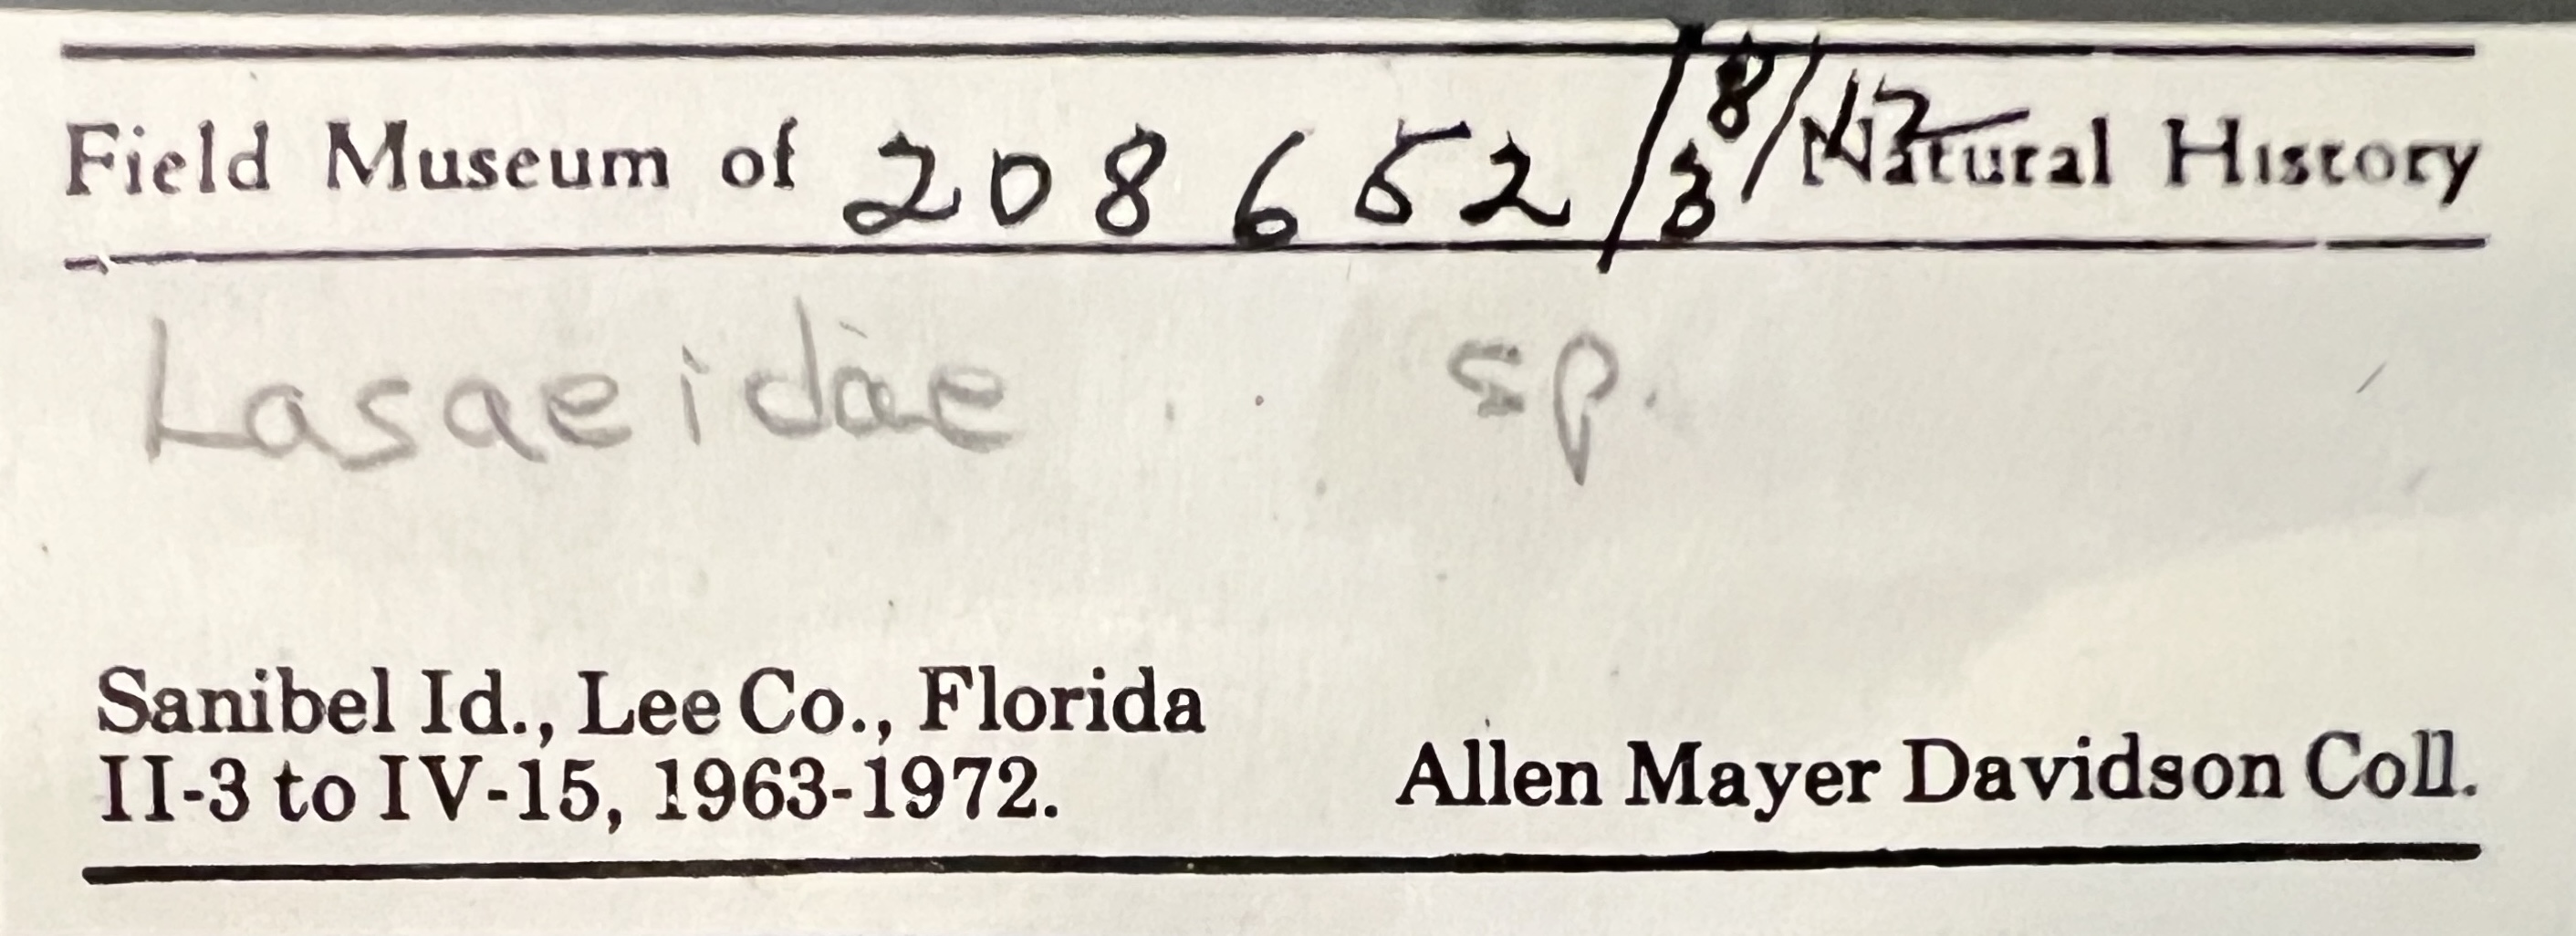 Field Museum of 208652/3 8/12 Natural History
Lasaeidae sp.
Sanibel Id., Lee Co., Florida
II-3 to IV-15, 1963-1972.
Allen Mayer Davidson Coll.